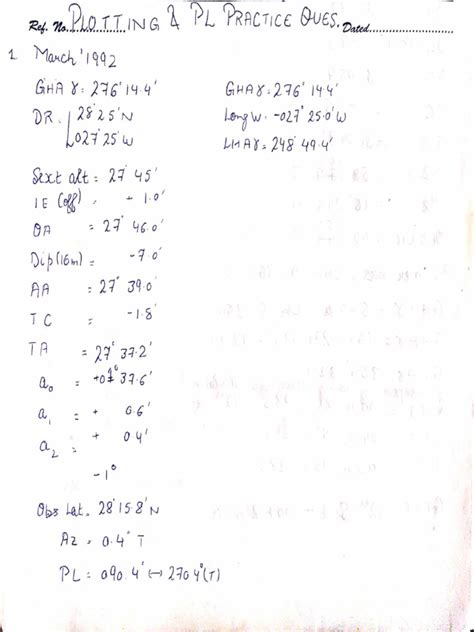 Ref. No. PLOTTING & PL PRACTICE QUES. Dated
1 March' 1992
GHA ♈: 276° 14.4'
GHA ♈: 276° 14.4'
DR: 28° 25' N
Long W: -027° 25.0' W
027° 25' W
LHA ♈: 248° 49.4'
Sext alt = 27° 45'
IE (off) = + 1.0'
OA = 27° 46.0'
Dip (16m) = -7.0'
AA = 27° 39.0'
TC = -1.8'
TA = 27° 37.2'
a₀ = +01° 37.6'
a₁ = + 0.6'
a₂ = + 0.4'
-1°
Obs Lat. = 28° 15.8' N
Az = 0.4° T
PL = 090.4° ↔ 270.4° (T)